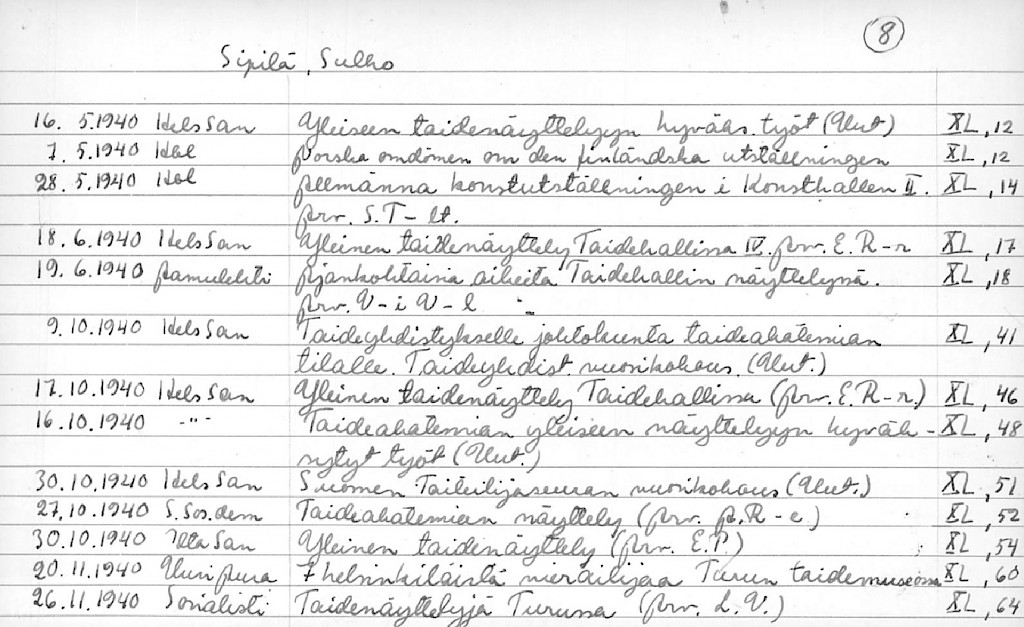 8
Sipilä, Sulho
16. 5.1940 Hels San Yleiseen taidenäyttelyyn hyväks. työt (Uut.) XL, 12
7. 5.1940 Hbl Norska omdömen om den finländska utställningen XL, 12
28. 5.1940 Hbl Allmänna konstutställningen i Konsthallen II. XL, 14
Arv. S.T-lt.
18. 6.1940 Hels San Yleinen taidenäyttely Taidehallissa IV. Arv. E. R-r XL, 17
19. 6.1940 Aamulehti Ajankohtaisia aiheita Taidehallin näyttelyssä. XL, 18
Arv. V-i V-l
9.10.1940 Hels San Taideyhdistykselle johtokunta taideakatemian XL, 41
tilalle. Taideyhdist. vuosikokous. (Uut.)
17.10.1940 Hels San Yleinen taidenäyttely Taidehallissa (Arv. E. R-r.) XL, 46
16.10.1940 -"- Taideakatemian yleiseen näyttelyyn hyväk- XL, 48
sytyt työt (Uut.)
30.10.1940 Hels San Suomen Taiteilijaseuran vuosikokous (Uut.) XL, 51
27.10.1940 S. Sos.dem Taideakatemian näyttely (Arv. A.R-e.) XL, 52
30.10.1940 Ilta San Yleinen taidenäyttely (Arv. E.P.) XL, 54
20.11.1940 Uusi Aura 7 helsinkiläistä vierailijaa Turun taidemuseossa XL, 60
26.11.1940 Sosialisti Taidenäyttelyjä Turussa (Arv. L.V.) XL, 64